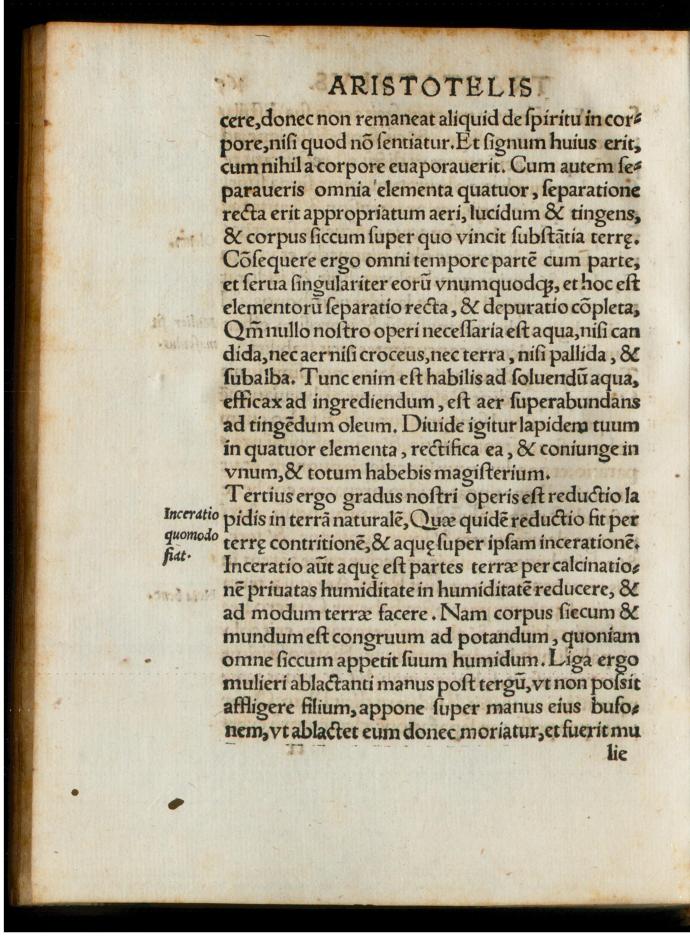 ARISTOTELIS
cere, donec non remaneat aliquid de spiritu in cor⸗
pore, nisi quod nō sentiatur. Et signum huius erit,
cum nihil a corpore euaporauerit. Cum autem se⸗
paraueris omnia elementa quatuor, separatione
recta erit appropriatum aeri, lucidum & tingens,
& corpus siccum super quo vincit substātia terrę.
Cōsequere ergo omni tempore partē cum parte,
et serua singulariter eorū vnumquodqꝫ, et hoc est
elementorū separatio recta, & depuratio cōpleta,
Qm̄ nullo nostro operi necessaria est aqua, nisi can
dida, nec aer nisi croceus, nec terra, nisi pallida, &
subalba. Tunc enim est habilis ad soluendū aqua,
efficax ad ingrediendum, est aer superabundans
ad tingēdum oleum. Diuide igitur lapidem tuum
in quatuor elementa, rectifica ea, & coniunge in
vnum, & totum habebis magisterium.
Tertius ergo gradus nostri operis est reductio la
Inceratio
quomodo
fiat.
pidis in terrā naturalē, Quæ quidē reductio fit per
terrę contritionē, & aquę super ipsam incerationē.
Inceratio aūt aquę est partes terræ per calcinatio⸗
nē priuatas humiditate in humiditatē reducere, &
ad modum terræ facere. Nam corpus siecum &
mundum est congruum ad potandum, quoniam
omne siccum appetit suum humidum. Liga ergo
mulieri ablactanti manus post tergū, vt non possit
affligere filium, appone super manus eius bufo⸗
nem, vt ablactet eum donec moriatur, et fuerit mu
lie